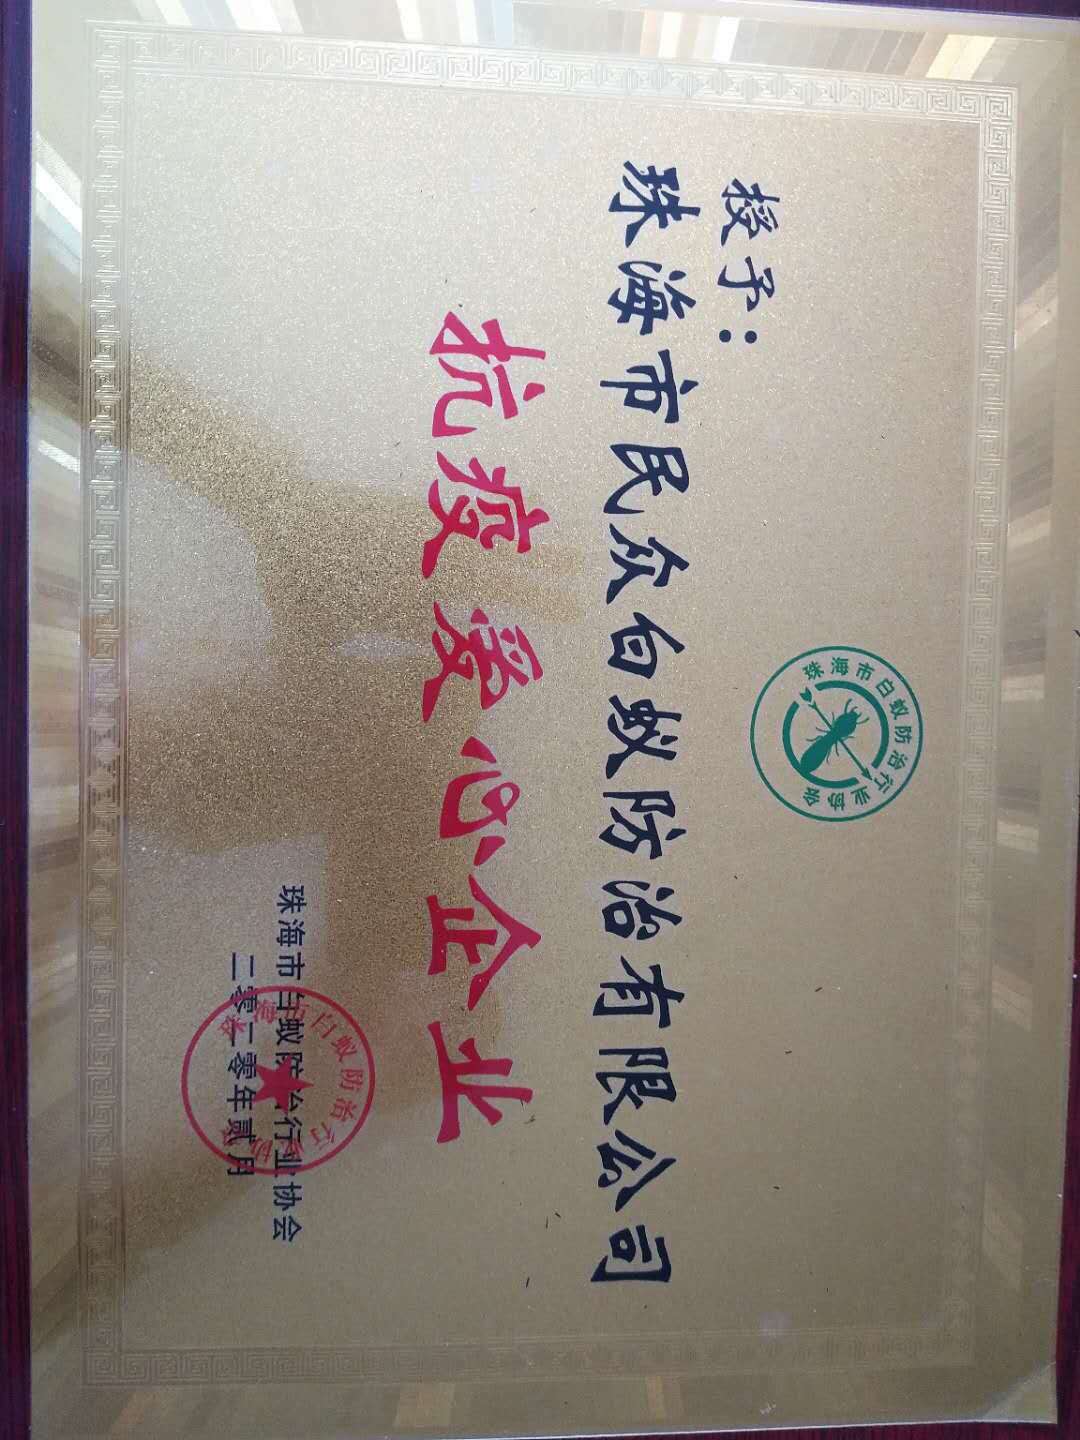 珠海市白蚁防治行业协会
授予：
珠海市民众白蚁防治有限公司
抗疫爱心企业
珠海市白蚁防治行业协会
二零二零年贰月
珠海市白蚁防治行业协会